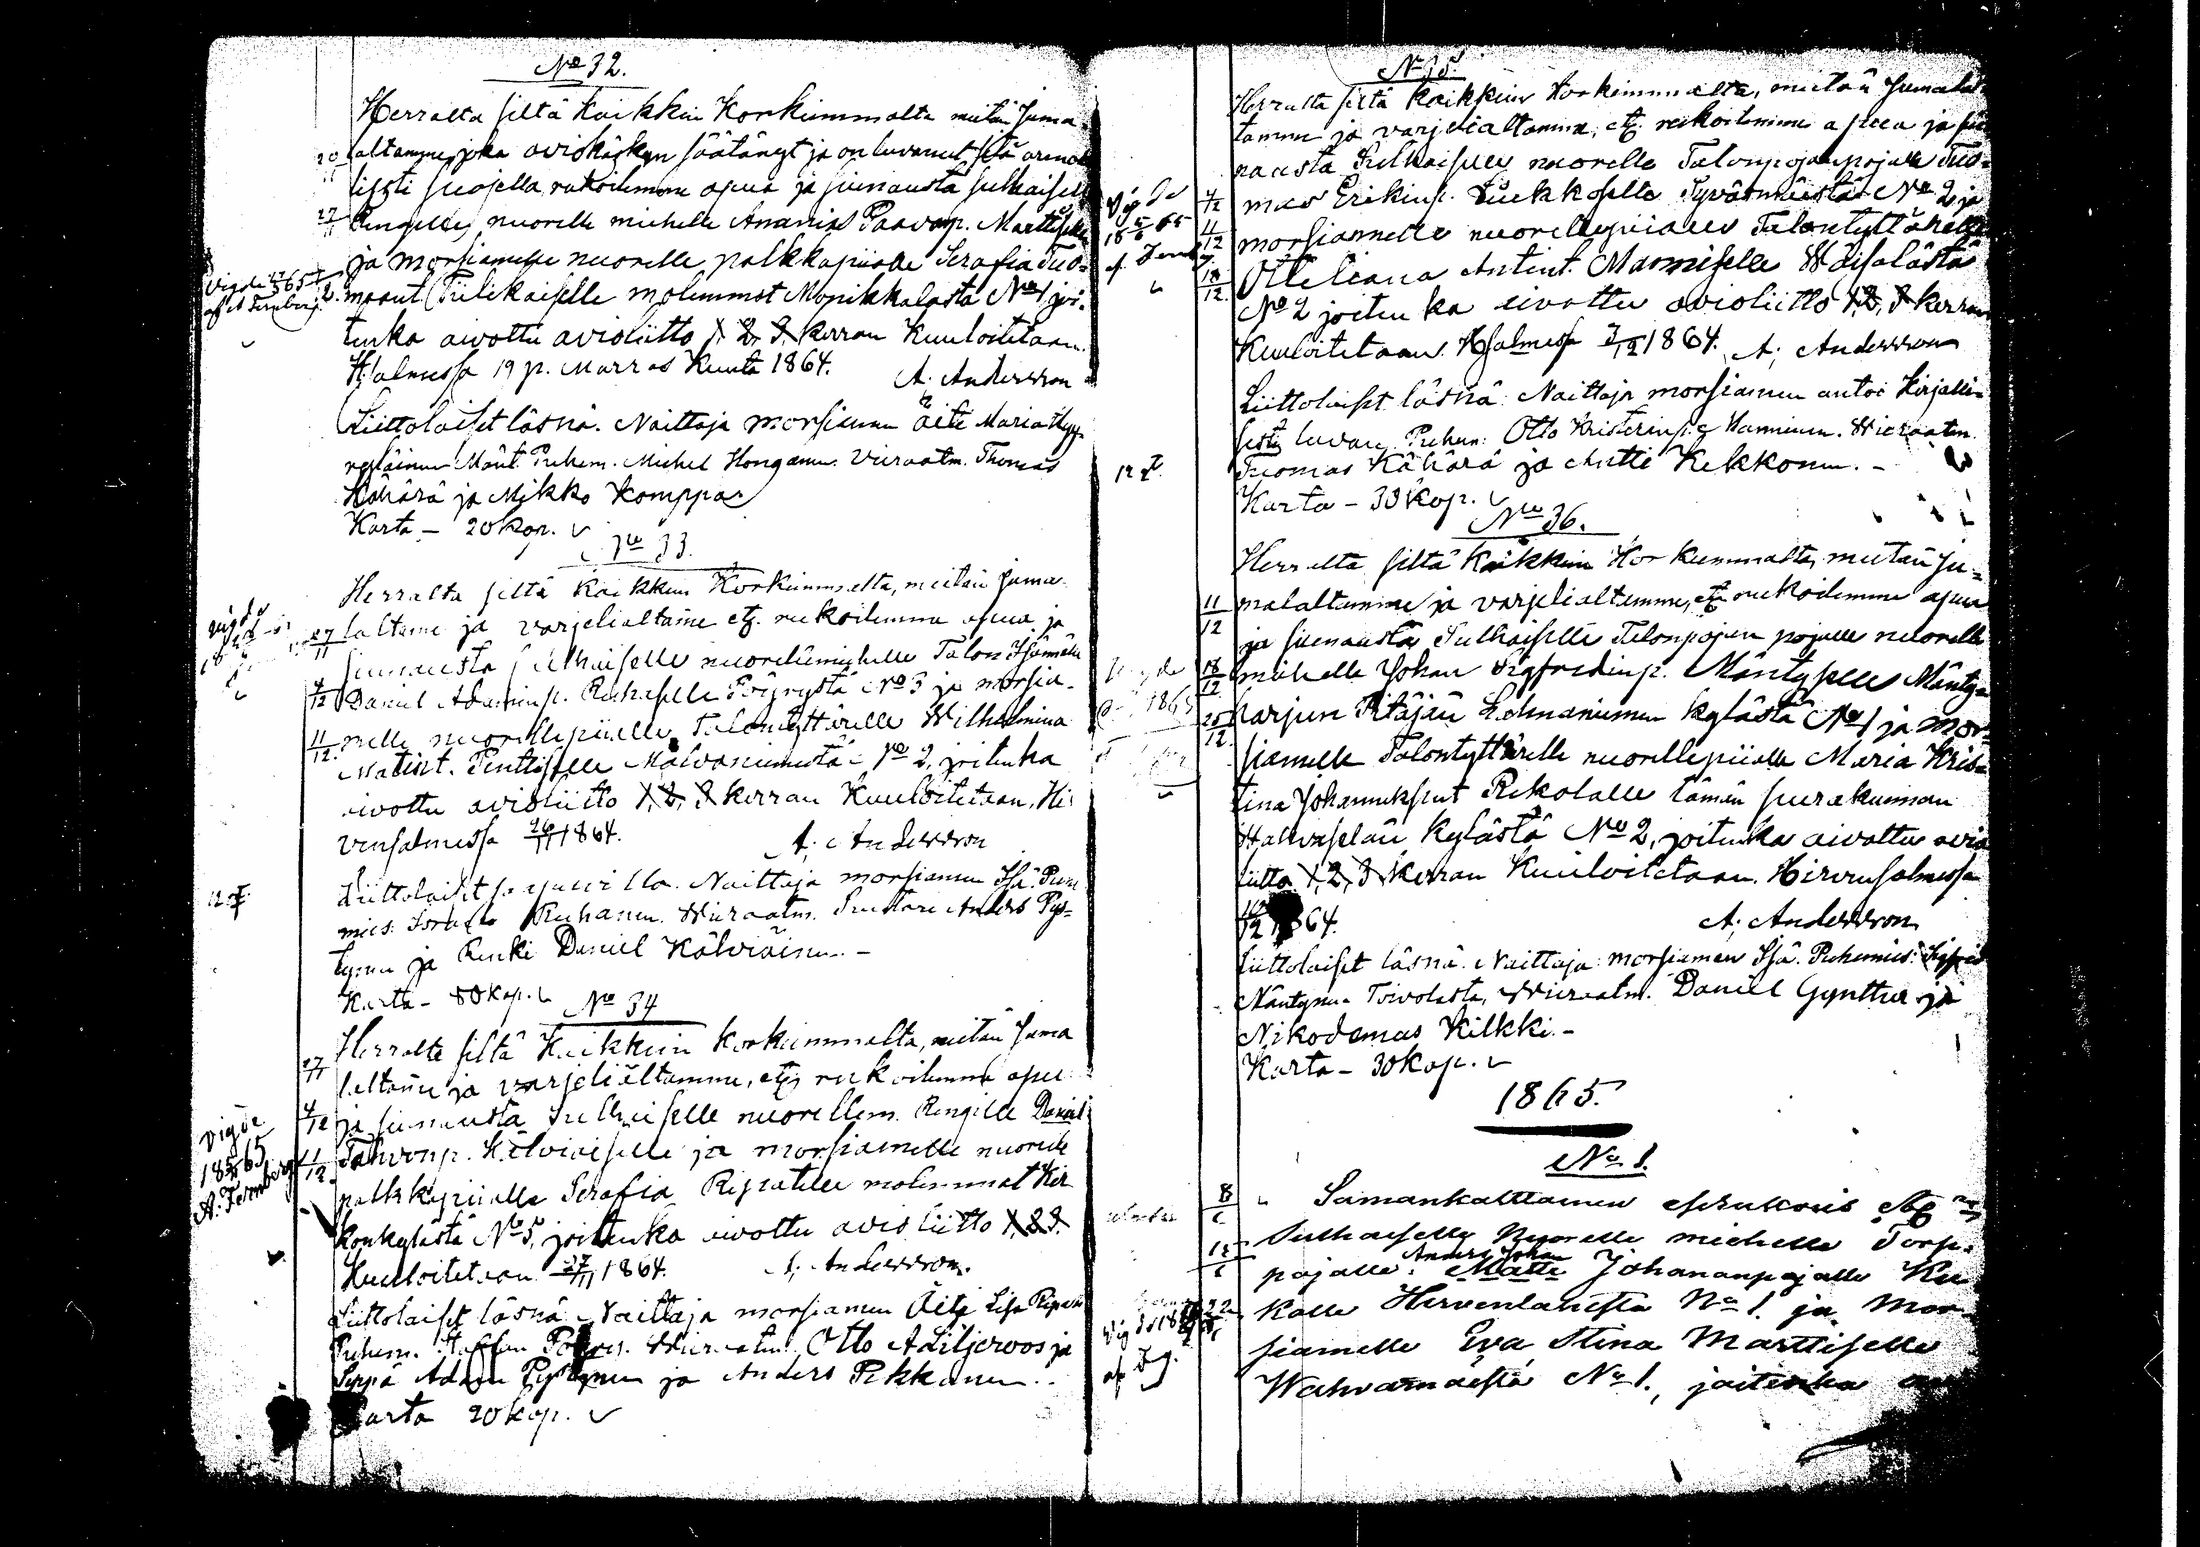 No 32.
Herralta siltä kaikkein Korkeimmalta meidän Juma
laltamme, joka avioskäskyn säätänyt ja on luvannut sitä armol
lisesti suojella rukoilemme apua ja siunausta sulhaiselle
Rengille, nuorelle miehelle Ananias Paavonp. Marttiselle
ja morsiamelle nuorelle palkkapiialle Serafia Tuo-
maant. Tiilikaiselle molemmat Monikkalasta No 1, joi-
tenka aivottu avioliitto 1. 2. 3. kerran Kuuloitetaan.
H:salmessa 19 p. Marras Kuuta 1864.
A. Andersson
Liittolaiset läsnä. Naittaja morsiamen äiti Maria Hyy-
ryläinen Mänt. Puhem. Michel Honganen. Vieraatm. Thomas
Kähärä ja Mikko Komppa
Karta - 20 kop.
Vigde 65
af A Fernberg.
20
11
27
11
No 33.
Herralta siltä kaikkein Korkeimmalta, meidän Juma-
laltamme ja varjelialtamme etz. rukoilemme apua ja
siunausta sulhaiselle nuorellemiehelle Talon Isännälle
Daniel Adaminp. Ruhaselle Pöyrystä No 3 ja morsia-
melle nuorellepiialle Talontyttärelle Wilhelmina
Matint. Penttiselle Malvaniemestä No 2, joitenka
aivottu avioliitto 1, 2, 3 kerran Kuuloitetaan. Hir
vensalmessa 26/11 1864.
A. Andersson
Liittolaiset Naittaja morsiamen Isä. Puhe
mies: Ruhanen. Wieraatm. Anders Pys-
tynen ja Renki Daniel Kälviäinen. -
Karta - 80 kop.
vigde
27
11
4
12
11
12
No 34
Herralta siltä Kaikkein korkeimmalta, meidän Juma
laltamme ja varjelialtamme, etz rukoilemme apua
ja siunausta Sulhaiselle nuorellem. Rengille Daniel
Tahvonp. Kälviäiselle ja morsiamelle nuorelle
palkkapiialle Serafia Ripatille molemmat Kir
konkylästä No 5, joitenka aivottu avioliitto 1, 2, 3.
Kuuloitetaan 27/11 1864.
A. Andersson.
Liittolaiset läsnä Naittaja morsiamen Äiti Lisa
Puhem. Staffan Wieraatm. Otto A Liljeroos ja
Seppä Adam Pystynen ja Anders Pekkanen.
Karta 20 kop.
27
11
4
12
11
12
vigde
18 65
A. Fernberg
No 35.
Herralta siltä kaikkein korkeimmalta, meidän Jumalal-
tamme ja varjelialtamme, etz. rukoilemme apua ja siu
nausta Sulhaiselle nuorelle Talonpojanpojalle Tuo-
mas Erikinp. Liukkoselle Syväsmäestä No 2 ja
morsiamelle nuorellepiialle Talontyttärelle
Otteliana Antint. Manniselle Wäisälästä
No 2 joitenka aivottu avioliitto 1, 2, 3 kerran
Kuuloitetaan. H:salmessa 3/12 1864.
A. Andersson
Liittolaiset läsnä Naittaja morsiamen antoi Kirjalli-
sesti luvan. Puhem: Otto Kristerinp. Manninen. Wieraatm.
Tuomas Kähärä ja Antti Kekkonen. -
Karta - 30 kop.
Vigde
4
12
11
12
18
12.
No 36.
Herralta siltä kaikkein Korkeimmalta, meidän Ju-
malaltamme ja varjelialtamme, etz rukoilemme apua
ja siunausta, Sulhaiselle Talonpojan pojalle nuorelle
miehelle Johan Sigfredinp. Mäntyselle Mäntyä
harjun Pitäjän Lehmaniemen kylästä No 1 ja mor-
siamelle Talontyttärelle nuorellepiialle Maria Kris-
tina Johannukset Rekolalle tämän seurakunnan
Hahvaselän kylästä No 2, joitenka aivottu avio
liitto 1, 2, 3 kerran Kuuloitetaan. Hirvensalmessa
1864.
A. Andersson
Liittolaiset läsnä. Naittaja: morsiamen Isä. Puhemies: Sigfrid
Mäntynen Toivolasta, Wieraatm. Daniel Gynther ja
Nikodemus Kilkki. -
Karta - 30 kop.
11
12
18
12
25
12.
1865.
No 1.
Samankalttainen esirukous etz
Sulhaiselle Nuorelle miehelle Torp-
pojalle: Anders Johan Matte Johananpojalle Ku
kolle Hirvenlahesta No 1. ja Mor-
siamelle Eva Stina Marttiselle
Wahvamäestä No 1., joitenka